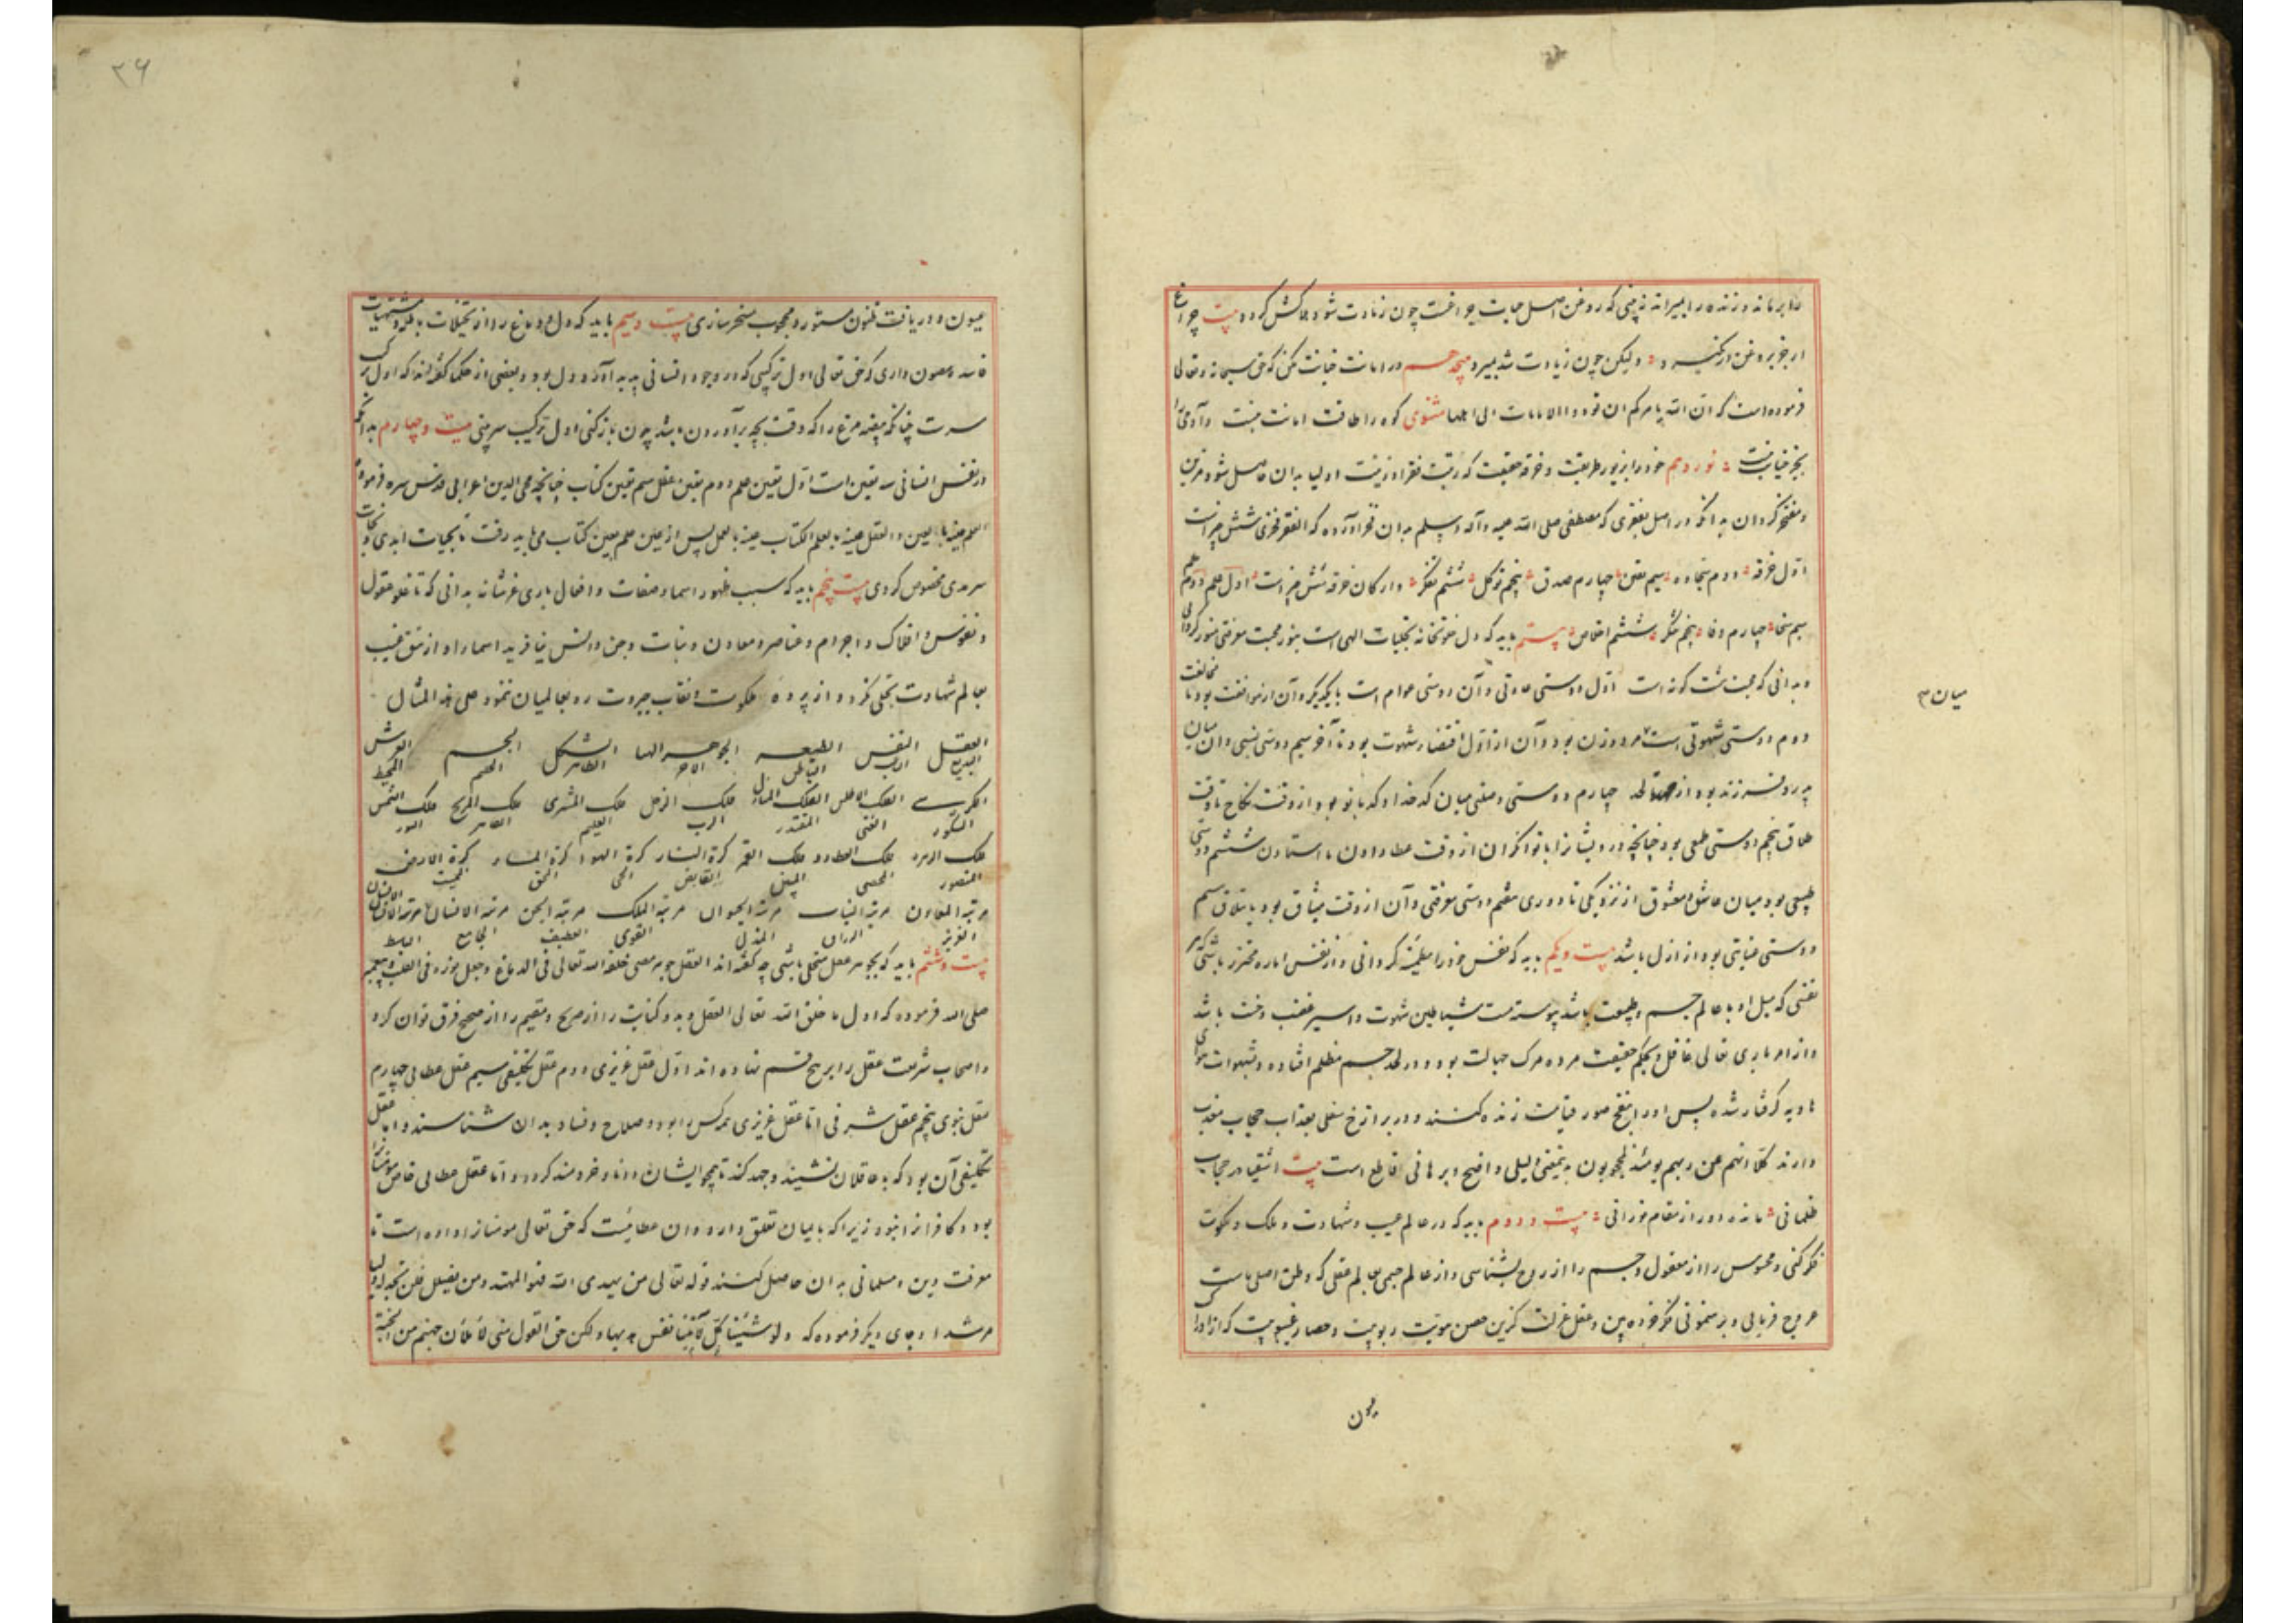 را برماند و زنده را بمیراند نه بینی که روغن اصل حیات چراغست چون زیادت شود هلاکش کردد بیت چراغ
ارچه روغن در کیرد ولیکن چون زیادت شد بمیرد هیجدهم در امانت خیانت مکن که حق سبحانه و تعالی
فرموده است که ان الله یامرکم ان تودوا الامانات الی اهلها مثنوی کوه را طاقت امانت نیست و آدمی را
بجز خیانت نیست نوزدهم خود را بزیور طریقت و خرقه حقیقت که رتبت فقرا و زینت اولیا بدان حاصل شود مزین
و مفتخر کردان بدانکه در اصل فقری که مصطفی صلی الله علیه و آله و سلم بدان فخر آورده که الفقر فخری شش چیز است
اول خرقه دوم سجاده سیم یقین چهارم صدق پنجم توکل ششم تفکر و ارکان خرقه شش چیز است اول علم دوم حلم
سیم سخا چهارم وفا پنجم شکر ششم اخلاص بیستم باید که دل خلوتخانه تجلیات الهی است بنور محبت معرفتی منور کردانی
و بدانی که محبت هشت کونه است اول دوستی عادتی و آن دوستی عوام است با یکدیکر و آن از موافقت بود تا مخالفت
دوم دوستی شهوتی است مرد و زن بود و آن از اول اقتضاء شهوت بود تا آخر سیم دوستی نسبی و آن میان
پدر و فرزند بود از لحد چهارم دوستی وصفی میان کدخدا و کدبانو بود از وقت نکاح تا وقت
طلاق پنجم دوستی طمعی بود چنانچه درویشان را با توانکران از وقت عطا دادن تا استادن ششم دوستی
طبیعی بود میان عاشق و معشوق از نزدیکی تا دوری هفتم دوستی معرفتی و آن از وقت میثاق بود تا تلاق هشتم
دوستی عنایتی بود از ازل باشد بیست و یکم باید که نفس خود را مطمئنه کردانی و از نفس اماره محترز باشی که هر
نفسی که میل او با عالم جسم و طبیعت باشد پیوسته مست شیاطین شهوت و اسیر غضب و خست باشد
و از امر باری تعالی غافل و بحکم حقیقت مرده مرک جهالت بود و در لحد جسم مظلم افتاده و بشهوات هوای
هاویه کرفتار شده پس او را بنفخ صور قیامت زنده کنند و در برازخ سفلی بعذاب حجاب معذب
دارند کلا انهم عن ربهم یومئذ لمحجوبون بدینمعنی دلیلی واضح و برهانی قاطع است بیت اشقیا در حجاب
ظلمانی مانده دور از مقام نورانی بیست و دوم باید که در عالم غیب و شهادت و ملک و ملکوت
فکر کنی و محسوس را از معقول و جسم را از روح بشناسی و از عالم جسمی بعالم عقلی که وطن اصلی ماست
عروج فرمائی و برهنمونی فکر خرده بین و عقل عزلت کزین حصن هویت ربوبیت و حصار غیبوبیت که از ادراک
میان ۳
یون
۲۶
عیون و دریافت ظنون مستور و محجوب مسخر سازی بیست و سیم باید که دل و دماغ را از تخیلات باطله و مشتهیات
فاسد مصون داری که حق تعالی اول ترکیبی که در وجود انسانی پدید آورد دل بود و بعضی از حکما کفته اند که اول ترکیب
سرست چنانکه بیضه مرغ را که وقت بچه برآوردن باشد چون باز کنی اول ترکیب سر بینی بیست و چهارم بدانکه
در نفس انسانی سه تعین است اول تعین علم دوم تعین عقل سیم تعین کتاب چنانچه محی الدین اعرابی قدس سره فرموده
العلم عینه بالعین و العقل عینه بالعلم الکتاب عینه بالعمل پس از عین علم بعین کتاب می باید رفت تا بحیات ابدی و نجات
سرمدی مخصوص کردی بیست پنجم باید که سبب ظهور اسما و صفات و افعال باری عز شانه بدانی که تا خلق عقول
و نفوس و افلاک و اجرام و عناصر و معادن و نبات و جن و انس نیافرید اسما را او از تتق غیب
بعالم شهادت تجلی نکرد و از پرده ملکوت و نقاب جبروت رو بعالمیان ننمود علی هذا المثال
العقل النفس الطبیعه الجوهر الهبا الشکل الجسم العرش
البدیع الباطن الاخر الظاهر الحکیم المحیط
الکرسی الفلک الاطلس الفلک المنازل فلک الزحل فلک المشتری فلک المریخ فلک الشمس
الشکور الغنی المقتدر الرب العلیم القاهر النور
فلک الزهره فلک العطارد فلک القمر کرة النار کرة الهوا کرة الماء کرة الارض
المصور المحصی المبین القابض الحی المحیی الممیت
مرتبة المعادن مرتبة النبات مرتبة الحیوان مرتبة الملک مرتبة الجن مرتبة الانسان
العزیز الرزاق المذل القوی اللطیف الجامع
بیست و ششم باید که بجوهر عقل متحلی باشی چه کفته اند العقل جوهر مضی خلقه الله تعالی فی الدماغ و جعل نوره فی القلب
صلی الله فرموده که اول ما خلق الله تعالی العقل و بدو کنایت را از صریح و سقیم را از صحیح فرق توان کرد
و اصحاب شریعت عقل را بر پنج قسم نهاده اند اول عقل غریزی دوم عقل تکلیفی سیم عقل عطائی چهارم
عقل نبوی پنجم عقل شرفی اما عقل غریزی همه کس را بود و صلاح و فساد بدان شناسند و اما عقل
تکلیفی آن بود که با عاقلان نشیند و جهد کند تا همچو ایشان دانا و خردمند کردد و اما عقل عطائی خاص مؤمنان را
بود و کافر را نبود زیرا که بایمان تعلق دارد و آن عطائیست که حق تعالی مومنان را داده است تا
معرفت دین و مسلمانی بدان حاصل کنند قوله تعالی من یهدی الله فهو المهتد و من یضلل فلن تجد له ولیا
مرشدا و جای دیکر فرموده که ولو شئنا لآتینا کل نفس هدیها ولکن حق القول منی لاملأن جهنم من الجنة